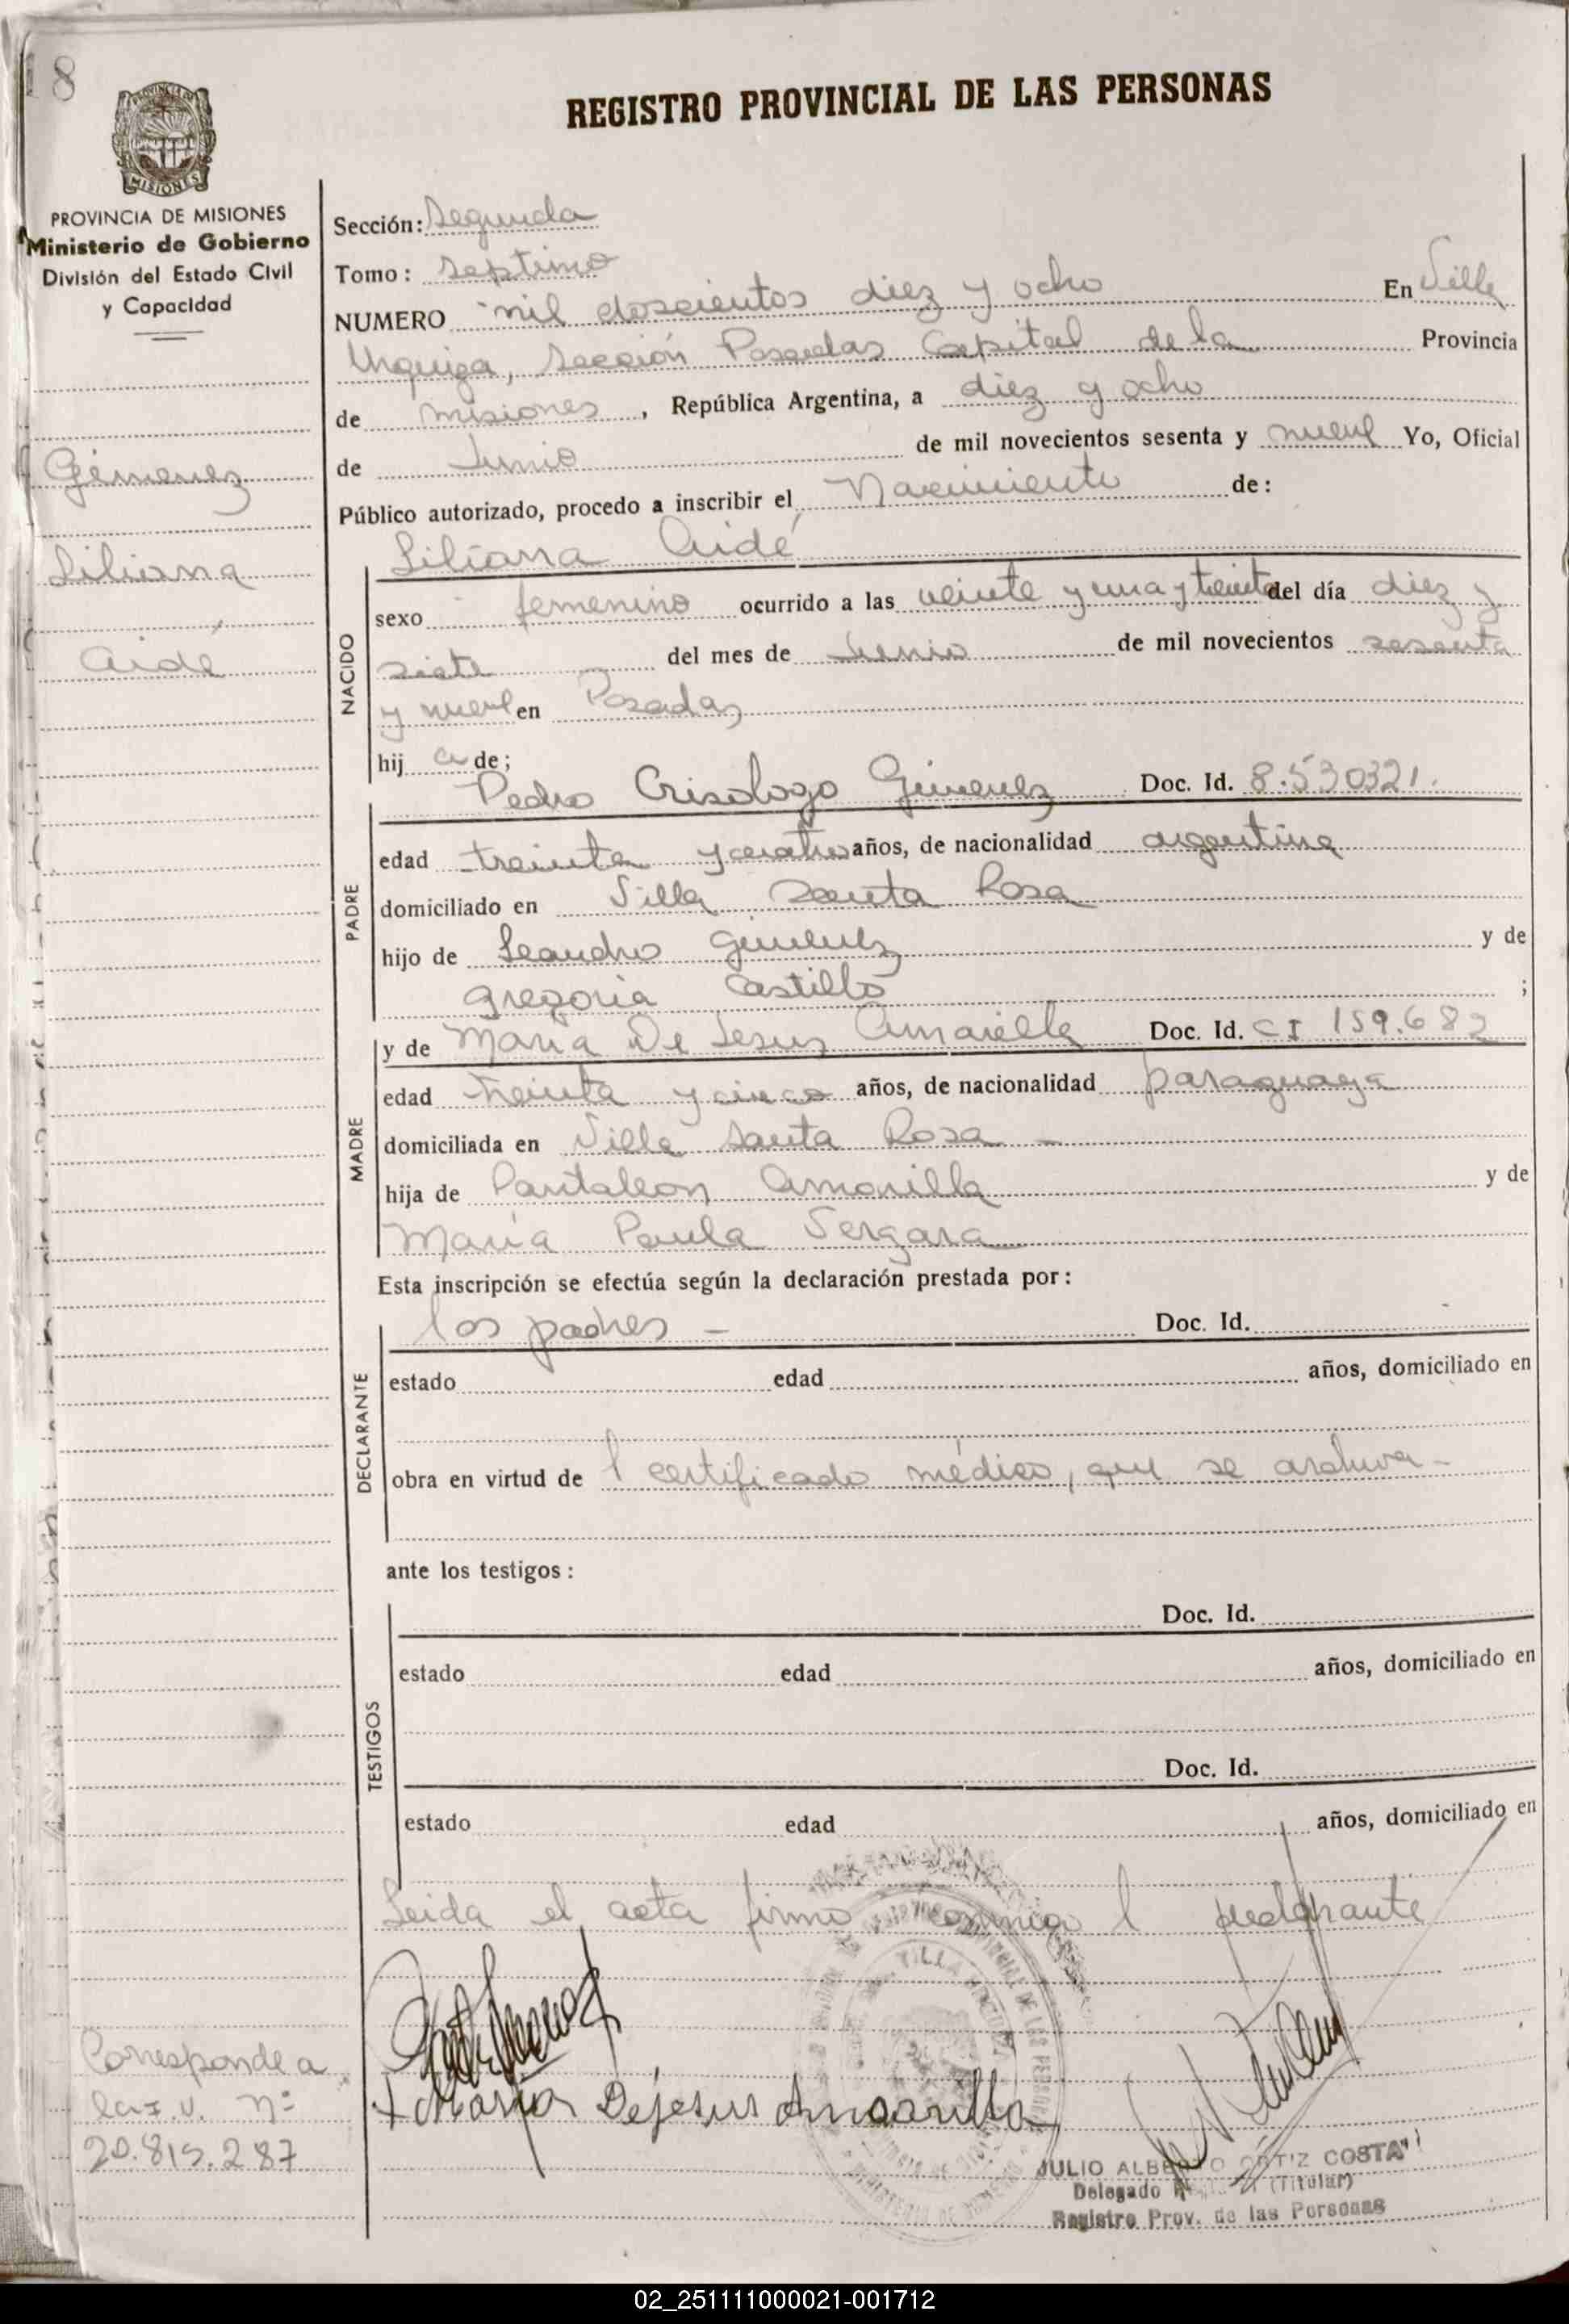 18
REGISTRO PROVINCIAL DE LAS PERSONAS
MISIONES
PROVINCIA DE MISIONES
Ministerio de Gobierno
División del Estado Civil
y Capacidad
Gimenez
Liliana
Aidé
Sección: Segunda
Tomo: Septimo
NUMERO mil doscientos diez y ocho En Villa
Urquiza, Sección Posadas Capital de la Provincia
de Misiones, República Argentina, a diez y ocho
de Junio de mil novecientos sesenta y nueve Yo, Oficial
Público autorizado, procedo a inscribir el Nacimiento de:
Liliana Aidé
NACIDO
sexo femenino ocurrido a las veinte y una y treinta del día diez y
siete del mes de Junio de mil novecientos sesenta
y nueve en Posadas
hij a de;
PADRE
Pedro Crisologo Gimenez Doc. Id. 8.530321.
edad treinta y cuatro años, de nacionalidad argentina
domiciliado en Villa Santa Rosa
hijo de Leandro Gimenez y de
Gregoria Castillo ;
MADRE
y de María De Jesus Amarilla Doc. Id. CI 159.682
edad treinta y cinco años, de nacionalidad paraguaya
domiciliada en Villa Santa Rosa -
hija de Pantaleon Amarilla y de
María Paula Vergara
Esta inscripción se efectúa según la declaración prestada por:
DECLARANTE
los padres - Doc. Id.
estado edad años, domiciliado en
obra en virtud de l certificado médico, que se archiva -
ante los testigos:
TESTIGOS
Doc. Id.
estado edad años, domiciliado en
Doc. Id.
estado edad años, domiciliado en
Leida el acta firma conmigo l declarante
María Dejesus Amarilla
Corresponde a
la I. U. nº
20.815.287
JULIO ALBERTO ORTIZ COSTA
Delegado (Titular)
Registro Prov. de las Personas
02_251111000021-001712